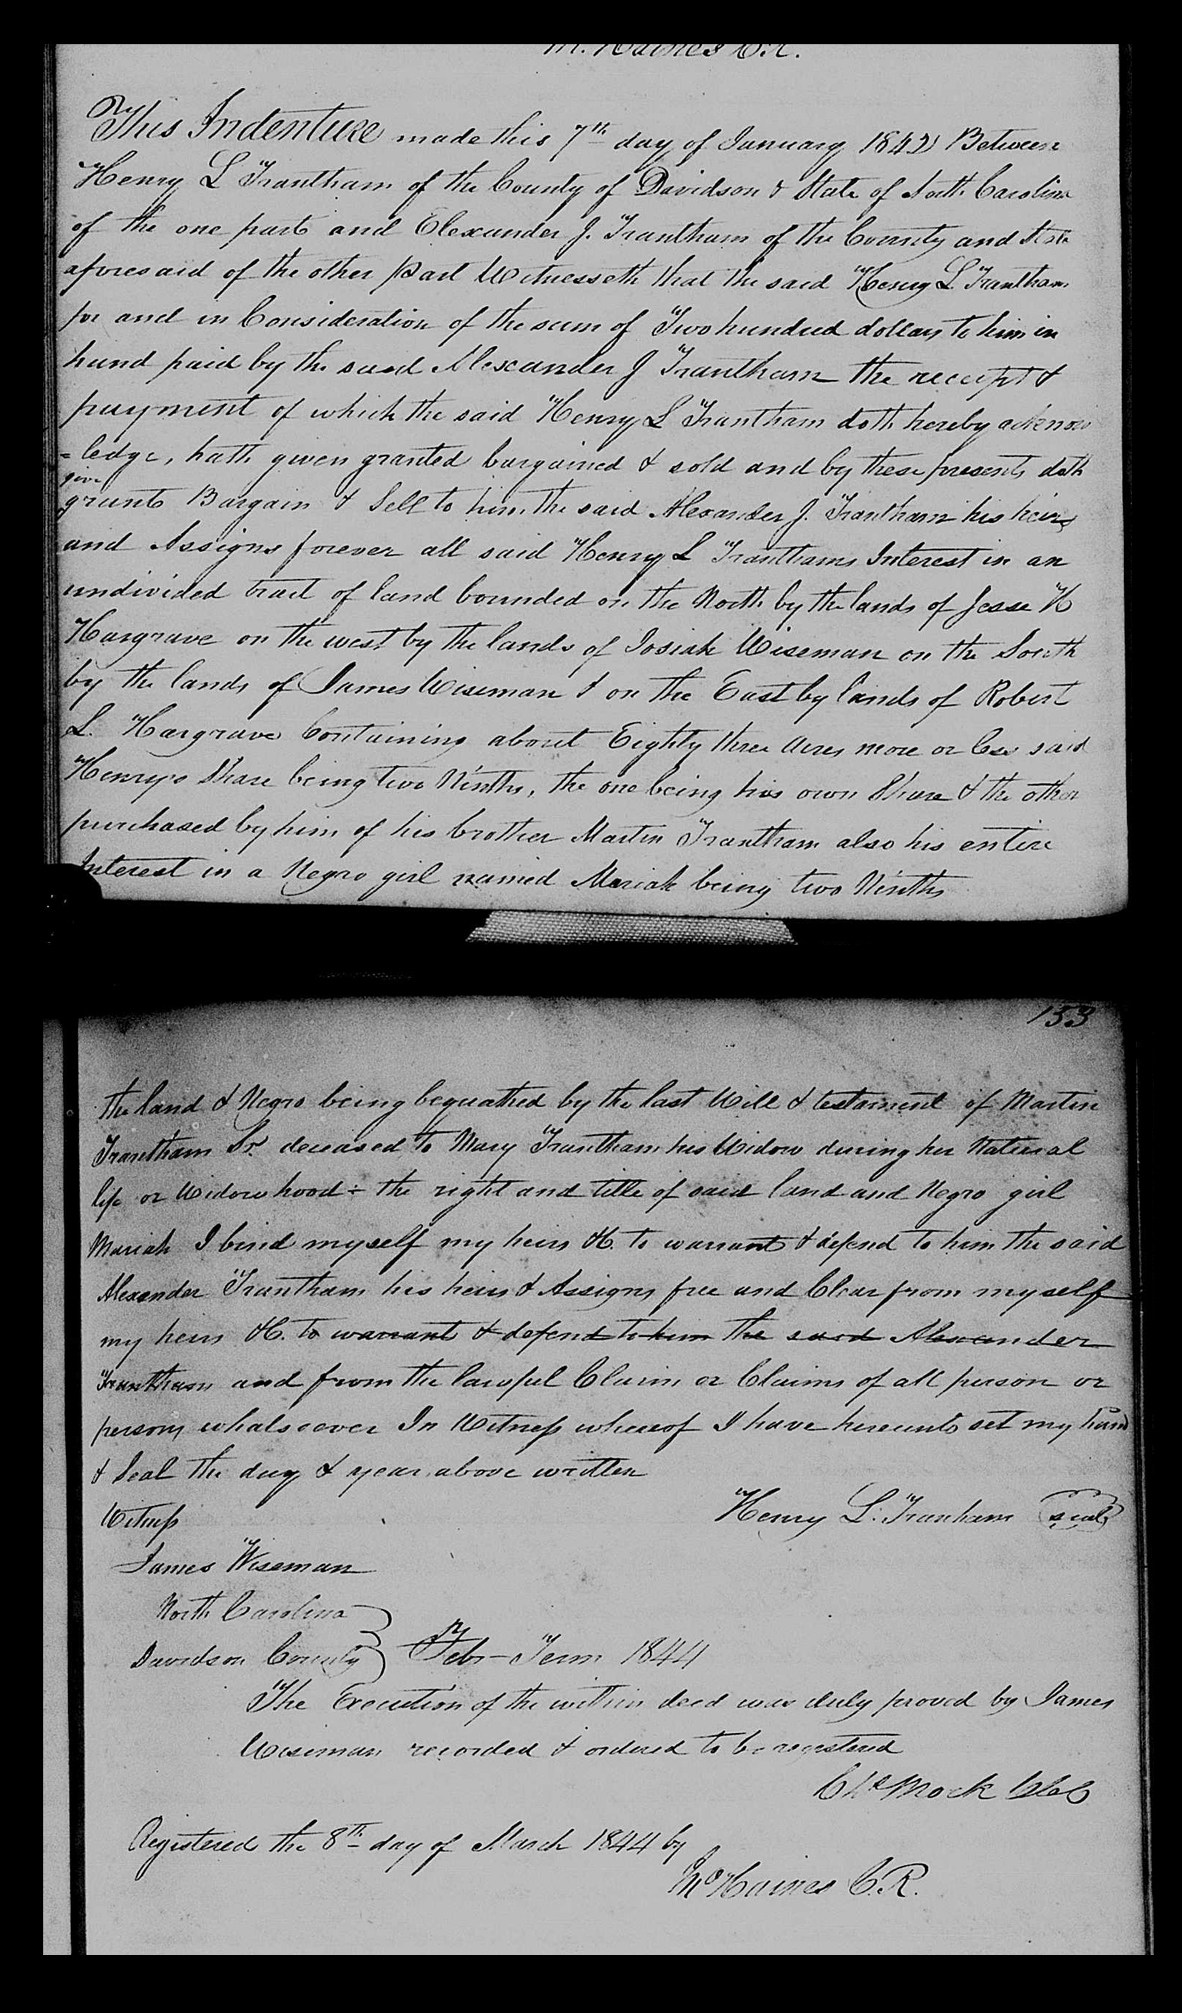 M. Haines C.R.
This Indenture made this 7th day of January 1842 Between
Henry L Trantham of the County of Davidson & State of North Carolina
of the one part and Elexander J. Trantham of the County and State
aforesaid of the other part Witnesseth that the said Henry L Trantham
for and in Consideration of the sum of Two hundred dollars to him in
hand paid by the said Alexander J Trantham the receipt &
payment of which the said Henry L Trantham doth hereby acknow
= ledge, hath given granted bargained & sold and by these presents doth
give
grant Bargain & Sell to him the said Alexander J. Trantham his heirs
and Assigns forever all said Henry L Tranthams Interest in an
undivided tract of land bounded on the North by the lands of Jesse H
Hargrave on the west by the lands of Josiah Wiseman on the South
by the lands of James Wiseman & on the East by lands of Robert
L. Hargrave Containing about Eighty three Acres more or less said
Henry's Share being two Ninths, the one being his own Share & the other
purchased by him of his brother Martin Trantham also his entire
Interest in a Negro girl named Mariah being two Ninths
153
the land & Negro being bequathed by the last Will & testament of Martin
Trantham Sr. deceased to Mary Trantham his Widow during her Natural
life or Widowhood - the right and title of said land and Negro girl
Mariah I bind myself my heirs &C. to warrant & defend to him the said
Alexander Trantham his heirs & Assigns free and Clear from myself
my heirs &C. to warrant & defend to him the said Alexander
Trantham and from the lawful Claim or Claims of all person or
persons whatsoever In Witness whereof I have hereunto set my hand
& Seal the day & year above written
Witness Henry L. Tranham seal
James Wiseman
North Carolina
Davidson County Feb- Term 1844
The Execution of the within deed was duly proved by James
Wiseman recorded & ordered to be registered
Chs Mock Clk
Registered the 8th day of March 1844 by
M Haines C.R.